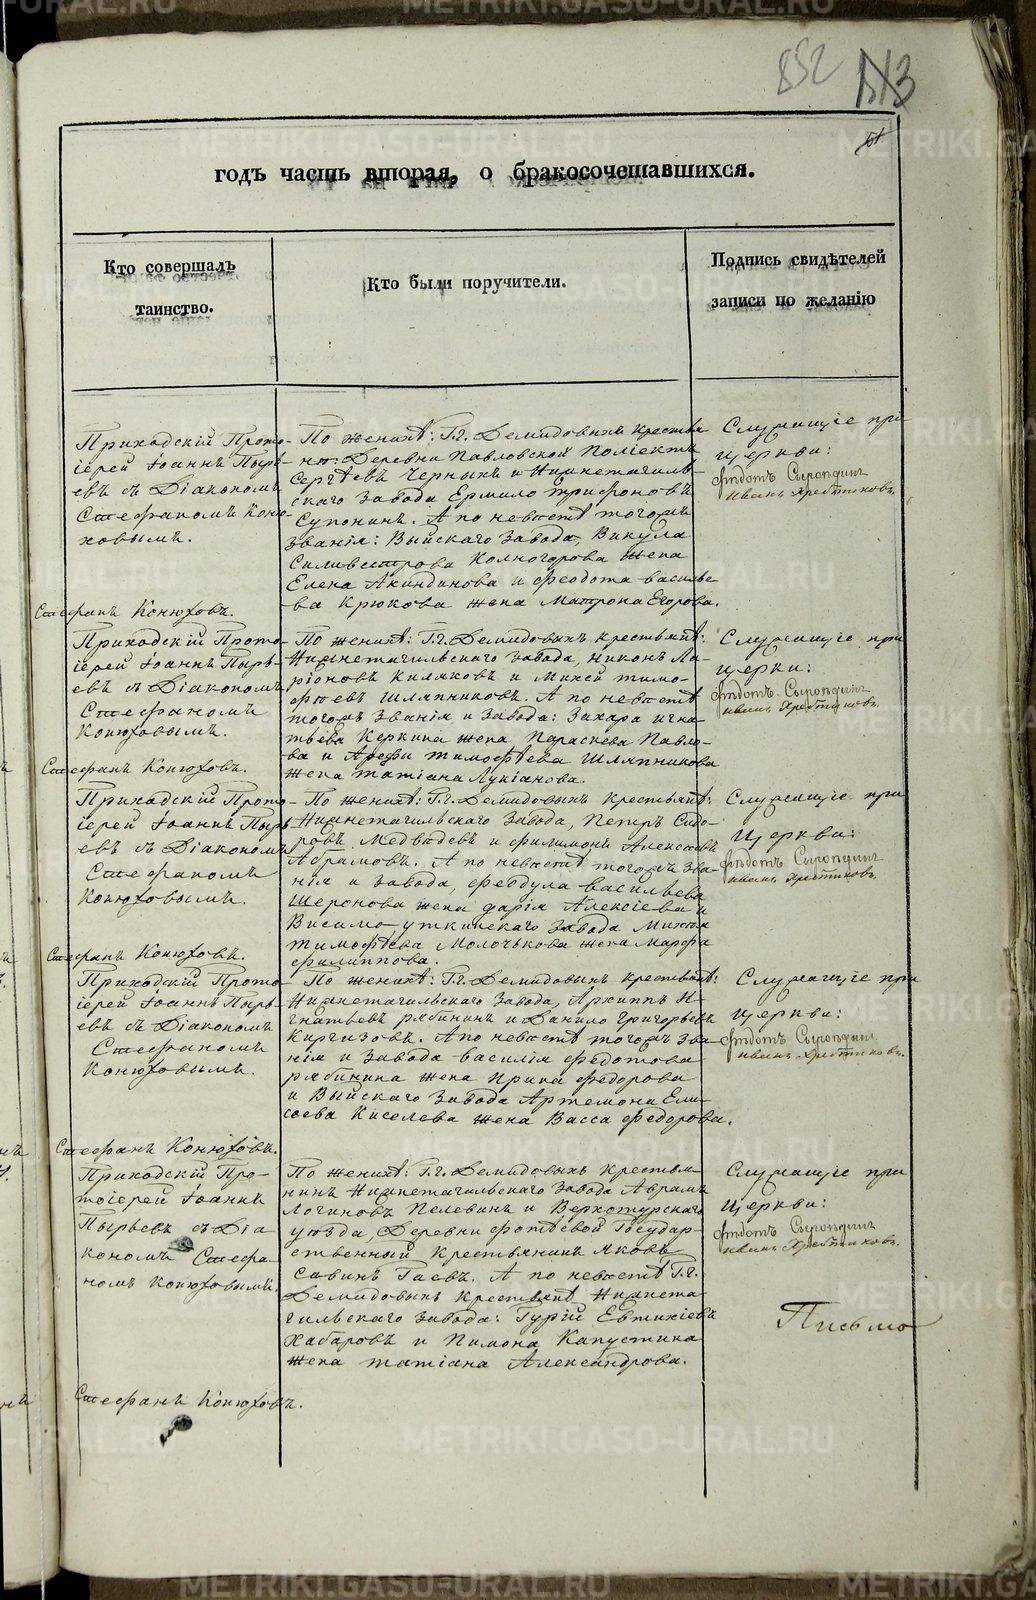 852
годъ часть вторая, о бракосочетавшихся.
Кто совершалъ
таинство.
Кто были поручители.
Подпись свидѣтелей
записи по желанію
Приходскій Прото-
іерей Іоаннъ Пырь-
евъ съ Діакономъ
Стефаномъ Коню-
ховымъ.
Стефанъ Конюховъ.
По женихѣ: Г.г. Демидовыхъ крестья-
не: Деревни Павловской Поліектъ
Сергѣевъ Черныхъ и Нижнетагиль-
скаго Завода Ермило Трифоновъ
Супонинъ. А по невѣстѣ тогожъ
званія: Выйскаго Завода, Викула
Силивестрова Колногорова жена
Елена Акиндинова и Феодота Василье-
ва Крюкова жена Матрона Егорова.
Служащіе при
Церкви:
Федотъ Сыропдинъ
Иванъ Хребтиковъ
Приходскій Прото-
іерей Іоаннъ Пырь-
евъ съ Діакономъ
Стефаномъ
Конюховымъ.
Стефанъ Конюховъ.
По женихѣ: Г.г. Демидовыхъ крестьяне:
Нижнетагильскаго Завода, Никонъ Ла-
ріоновъ Киляковъ и Михей Тимо-
феевъ Шляпниковъ. А по невѣстѣ
тогожъ званія и Завода: Захара Игна-
тьева Керкина жена Параскева Павло-
ва и Арефы Тимофѣева Шляпникова
жена Татіана Лукіанова.
Служащіе при
Церкви:
Федотъ Сыропдинъ
Иванъ Хребтиковъ.
Приходскій Прото-
іерей Іоаннъ Пырь-
евъ съ Діакономъ
Стефаномъ
Конюховымъ.
Стефанъ Конюховъ.
По женихѣ: Г.г. Демидовыхъ крестьяне:
Нижнетагильскаго Завода, Петръ Сидо-
ровъ Медвѣдевъ и Филимонъ Алексѣевъ
Абрамовъ. А по невѣстѣ тогожъ зва-
нія и Завода, Феодула Васильева
Шеронова жена Дарія Алексіева и
Висимо-уткинскаго Завода Михея
Тимофѣева Молочькова жена Марфа
Филиппова.
Служащіе при
Церкви:
Федотъ Сыропдинъ
Иванъ Хребтиковъ.
Приходскій Прото-
іерей Іоаннъ Пырь-
евъ съ Діакономъ
Стефаномъ
Конюховымъ.
Стефанъ Конюховъ.
По женихѣ: Г.г. Демидовыхъ крестьяне:
Нижнетагильскаго Завода, Архиппъ И-
гнатьевъ Рябининъ и Данило Григорьевъ
Киргизовъ. А по невѣстѣ тогожъ зва-
нія и Завода Василія Федотова
Рябинина жена Ирина Федорова
и Выйскаго Завода Артемона Ели-
сеева Киселева жена Васса Федорова.
Служащіе при
Церкви:
Федотъ Сыропдинъ
Иванъ Хребтиковъ.
Приходскій Про-
тоіерей Іоаннъ
Пырьевъ съ Діа-
кономъ Стефа-
номъ Конюховымъ.
Стефанъ Конюховъ.
По женихѣ: Г.г. Демидовыхъ крестья-
нинъ Нижнетагильскаго Завода Аврамъ
Логиновъ Пелевинъ и Верхотурскаго
уѣзда, Деревни Фотѣевой Государ-
ственный Крестьянинъ Яковъ
Савинъ Гаевъ. А по невѣстѣ Г.г.
Демидовыхъ крестьяне Нижнета-
гильскаго Завода: Гурій Евтихіевъ
Хабаровъ и Пимона Капустина
жена Татіана Александрова.
Служащіе при
Церкви:
Федотъ Сыропдинъ
Иванъ Хребтиковъ.
Письмо